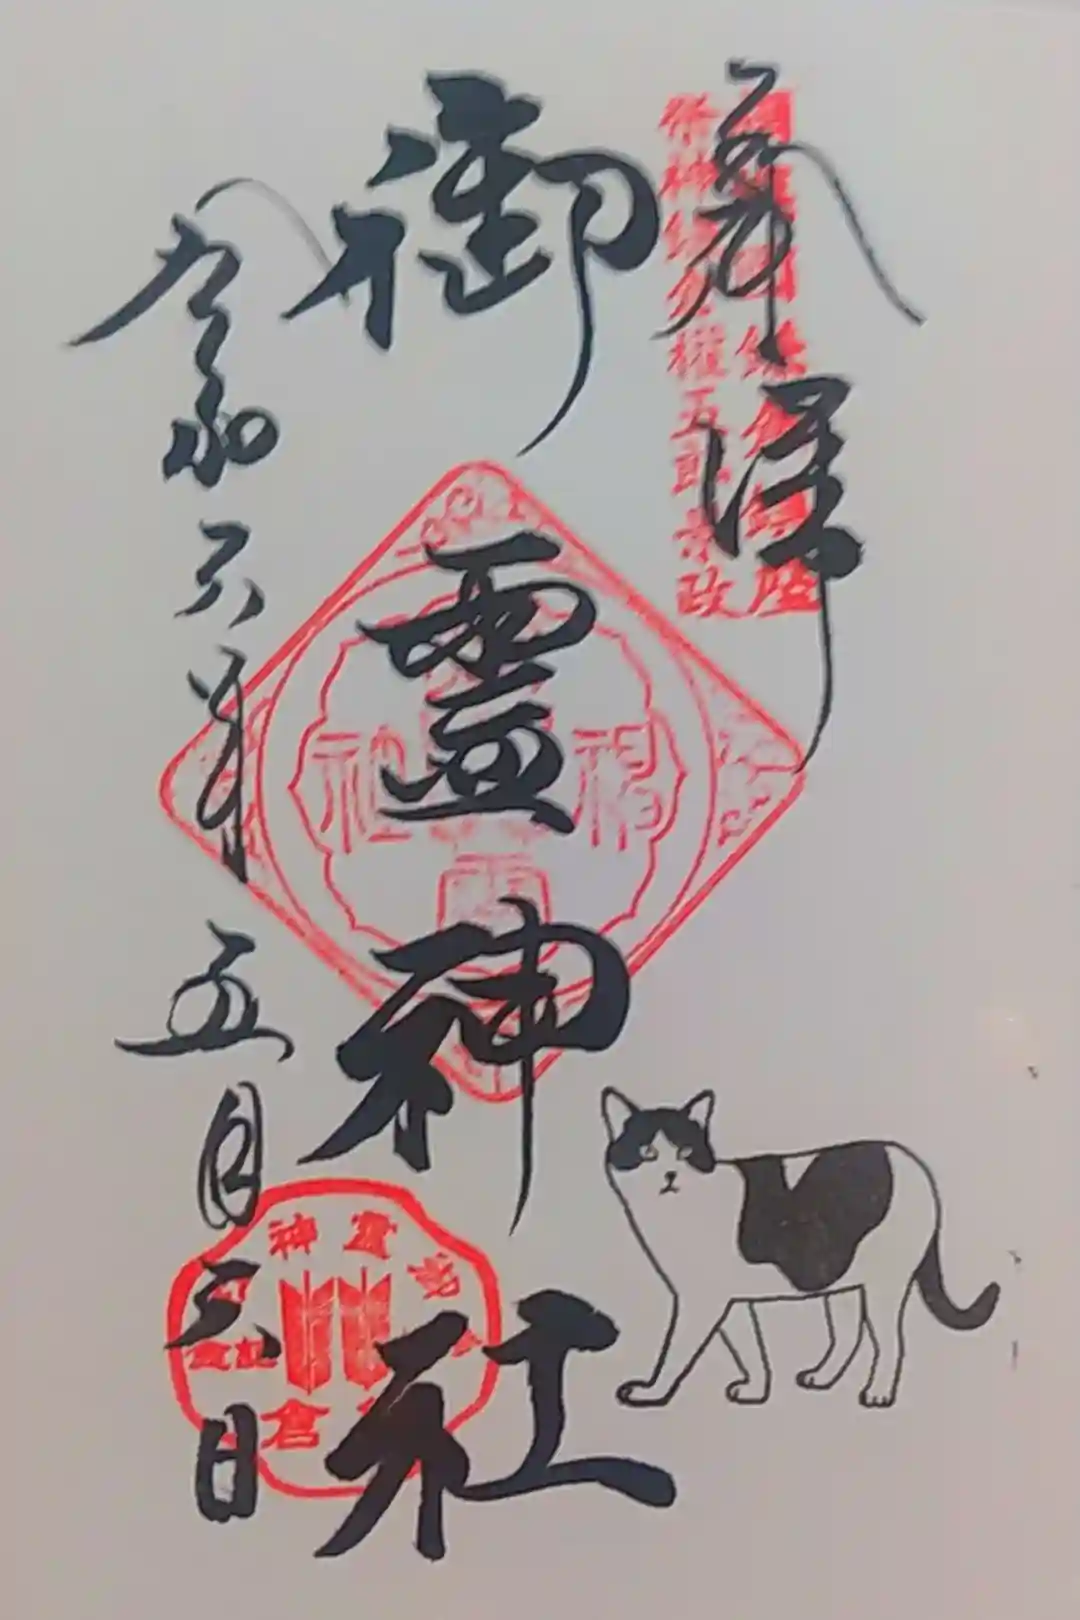 奉拝
鎌倉
祭神鎌倉権五郎景政
御霊神社
令和六年
五月三日
神霊
倉